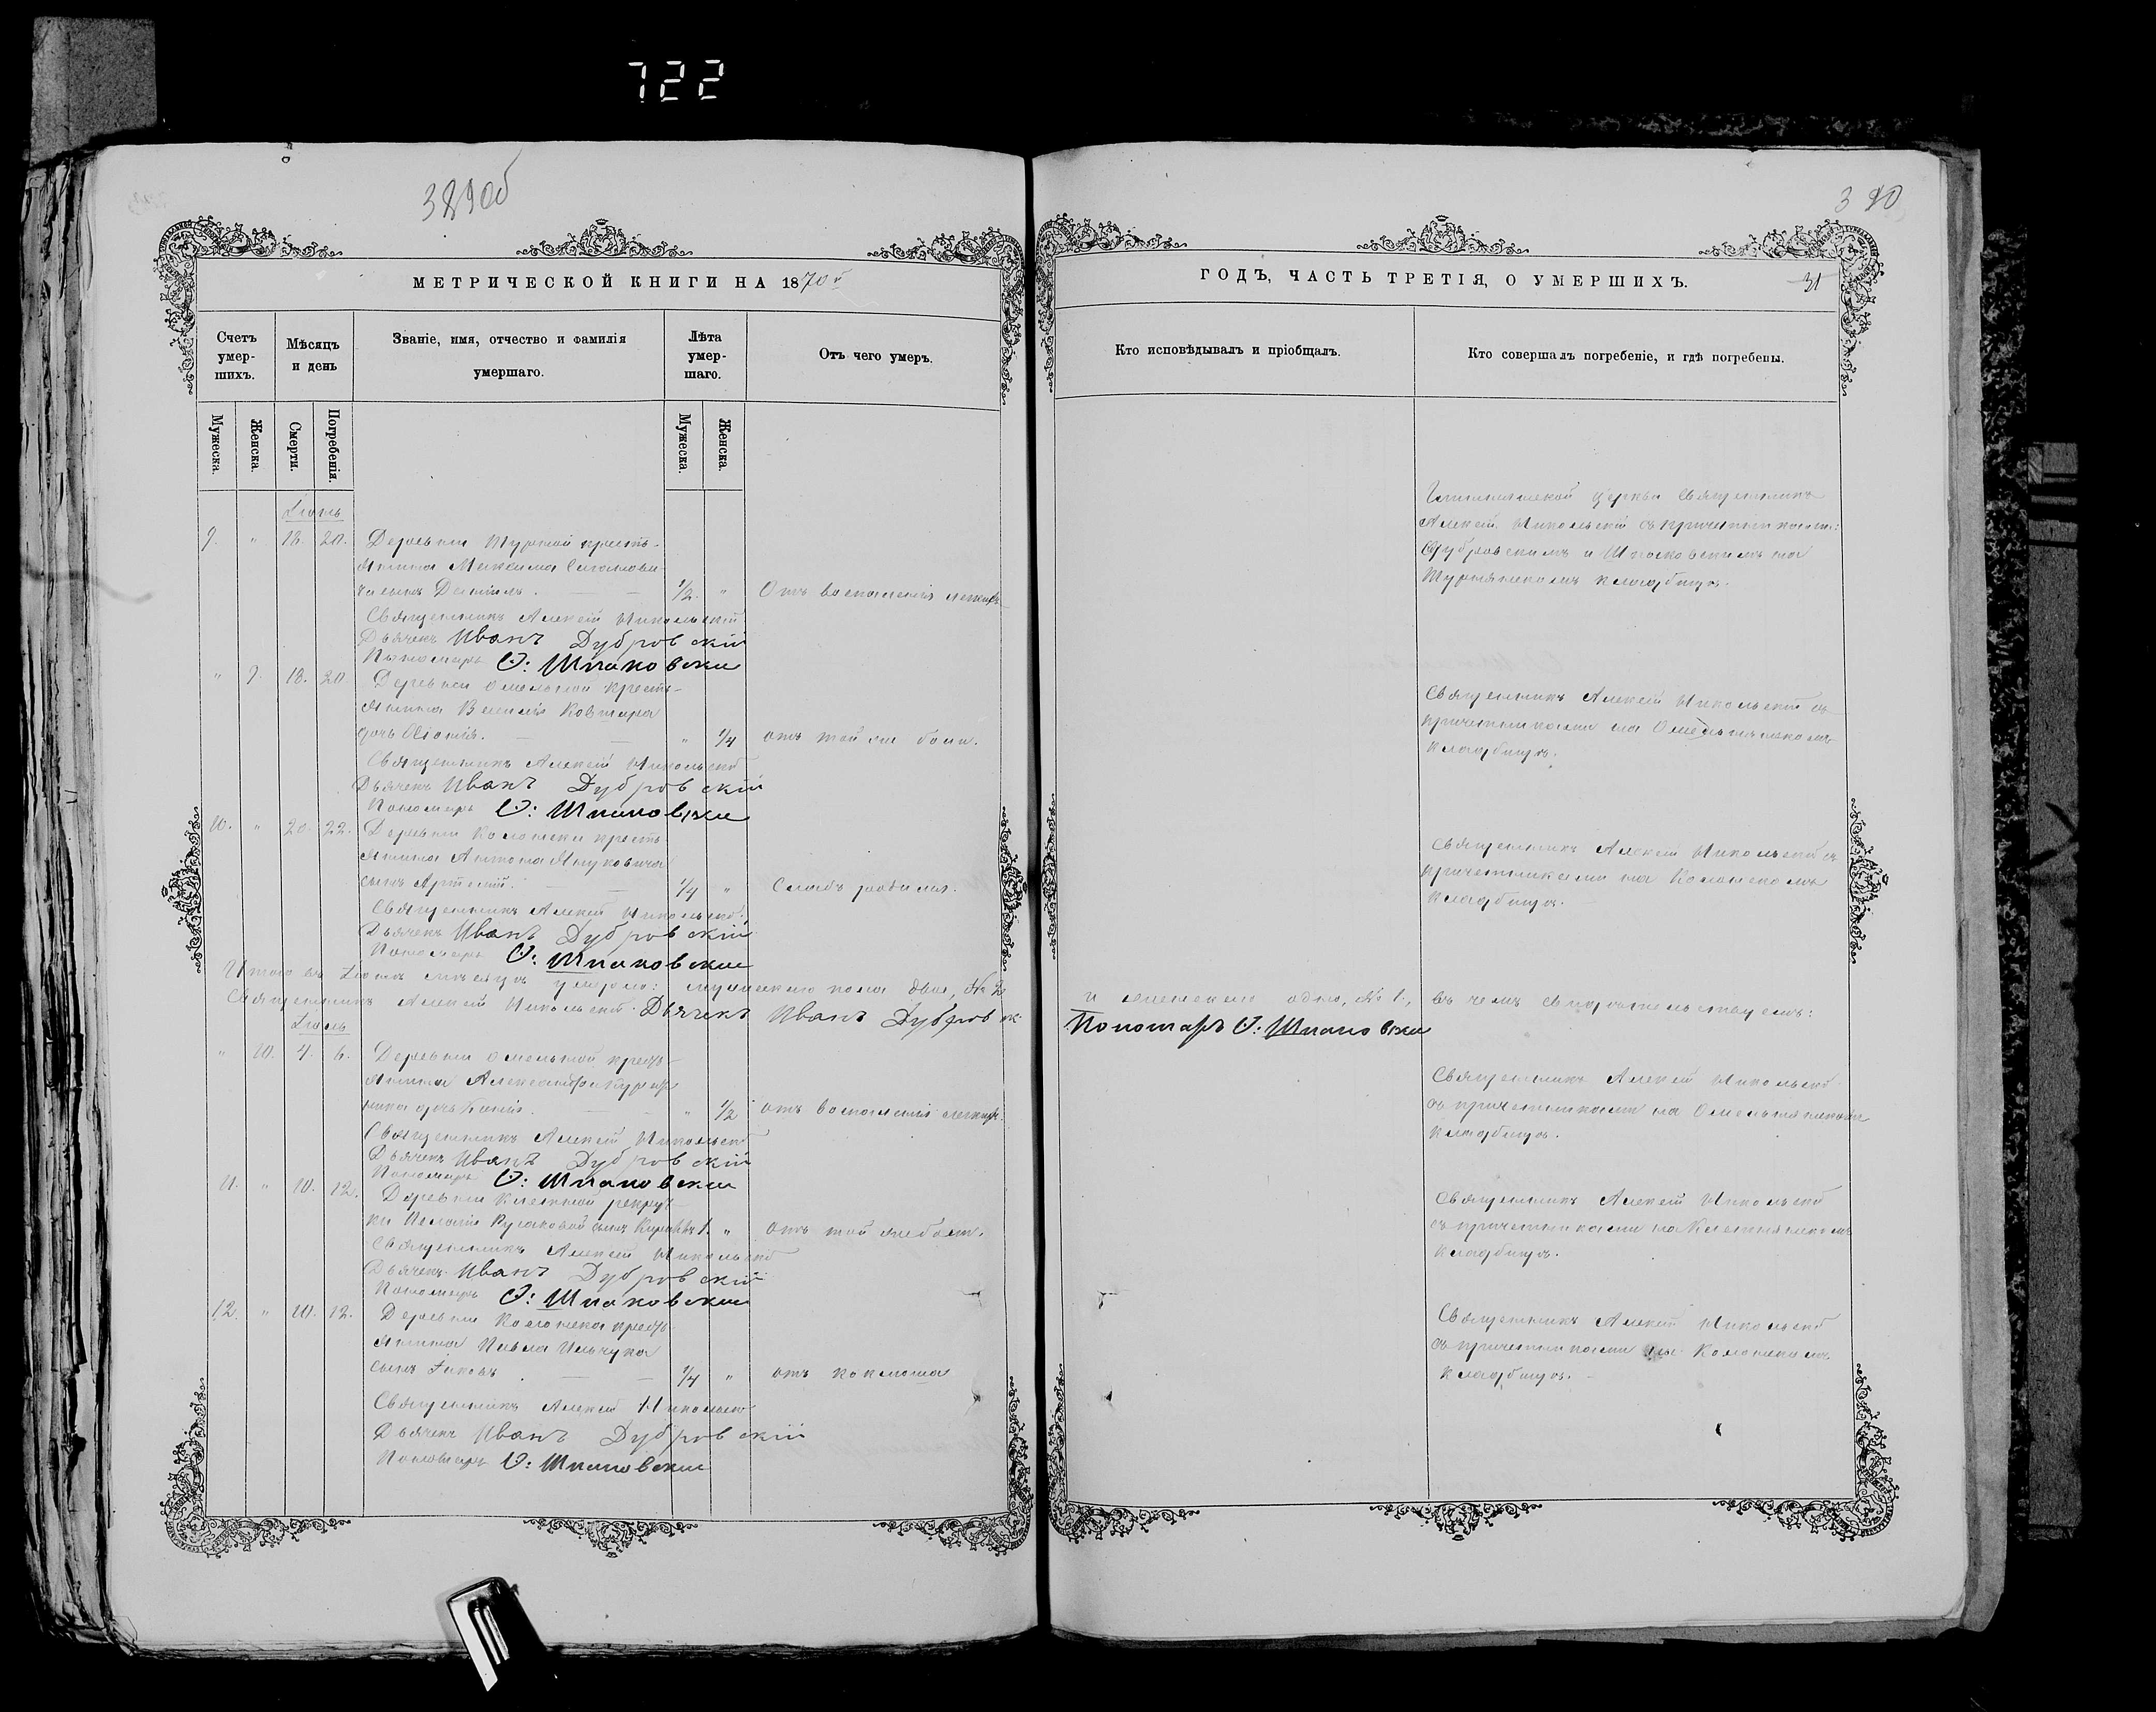 722
389об
390
МЕТРИЧЕСКОЙ КНИГИ НА 1870й
ГОДЪ, ЧАСТЬ ТРЕТІЯ, О УМЕРШИХЪ.
31
Счетъ умер-шихъ.
Мѣсяцъ и день
Званіе, имя, отчество и фамилія умершаго.
Лѣта умер-шаго.
Отъ чего умеръ.
Кто исповѣдывалъ и пріобщалъ.
Кто совершалъ погребеніе, и гдѣ погребены.
Мужеска.
Женска.
Смерти.
Погребенія.
Мужеска.
Женска.
Іюнь
9. " 18. 20. Деревни Турной кресть-
янина Максима
сынъ Даніилъ. 1/2. " Отъ воспаленія легкихъ
Священникъ Алексій Никольскій
Дьячекъ Иванъ Дубровскій
Пономарь Ѳ: Шпаковскій
церкви Священникъ
Алексій Никольскій съ причетниками:
Дубровскимъ и Шпаковскимъ на
Турнянскомъ кладбищѣ.
" 9. 18. 20. Деревни Омельной кресть-
янина Василія Ковшара
дочь Евфимія. " 1/4 отъ той же боли.
Священникъ Алексій Никольскій
Дьячекъ Иванъ Дубровскій
Пономарь Ѳ: Шпаковскій
Священникъ Алексій Никольскій съ
причетниками на Омельнянскомъ
кладбищѣ.
10. " 20. 22. Деревни Колонски кресть-
янина Антона Януковича
сынъ Артемій. 1/4 " Слабъ родился.
Священникъ Алексій Никольскій
Дьячекъ Иванъ Дубровскій
Пономарь Ѳ: Шпаковскій
Священникъ Алексій Никольскій съ
причетниками на Колонскомъ
кладбищѣ.
Итого въ Іюнѣ мѣсяцѣ умерло: мужескаго пола двое, № 2
и женскаго одно, № 1, въ чемъ свидѣтельствуемъ:
Священникъ Алексій Никольскій Дьячекъ Иванъ Дубровск.
Пономарь Ѳ: Шпаковскій
Іюль
" 10. 4. 6. Деревни Омельной кресть-
янина Александра
дочь 1/2 отъ воспаленія легкихъ.
Священникъ Алексій Никольскій
Дьячекъ Иванъ Дубровскій
Пономарь Ѳ: Шпаковскій
Священникъ Алексій Никольскій
съ причетниками на Омельнянскомъ
кладбищѣ.
11. " 10. 12. Деревни Клетной рекрут-
ки Кулаковой сынъ 1. " Отъ той же боли.
Священникъ Алексій Никольскій
Дьячекъ Иванъ Дубровскій
Пономарь Ѳ: Шпаковскій
Священникъ Алексій Никольскій
съ причетниками на Клетнянскомъ
кладбищѣ.
12. " 10. 12. Деревни Колонска кресть-
янина Павла Ильчука
сынъ Іаковъ. 1/4 " отъ коклюша
Священникъ Алексій Никольскій
Дьячекъ Иванъ Дубровскій
Пономарь Ѳ: Шпаковскій
Священникъ Алексій Никольскій
съ причетниками на Колонскомъ
кладбищѣ.